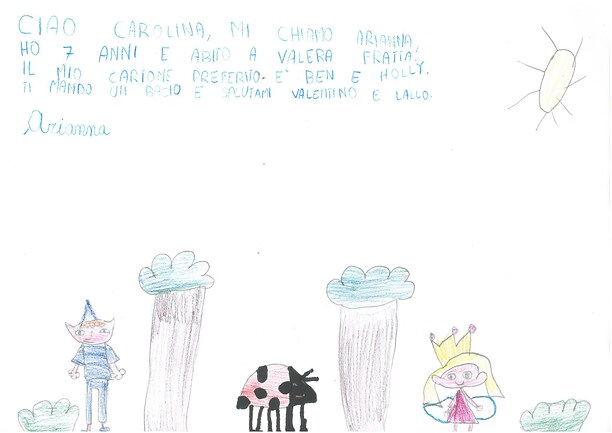 CIAO CAROLINA, MI CHIAMO ARIANNA,
HO 7 ANNI E ABITO A VALERA FRATTA.
IL MIO CARTONE PREFERITO E' BEN E HOLLY.
TI MANDO UN BACIO E SALUTAMI VALENTINO E LALLO.
Arianna